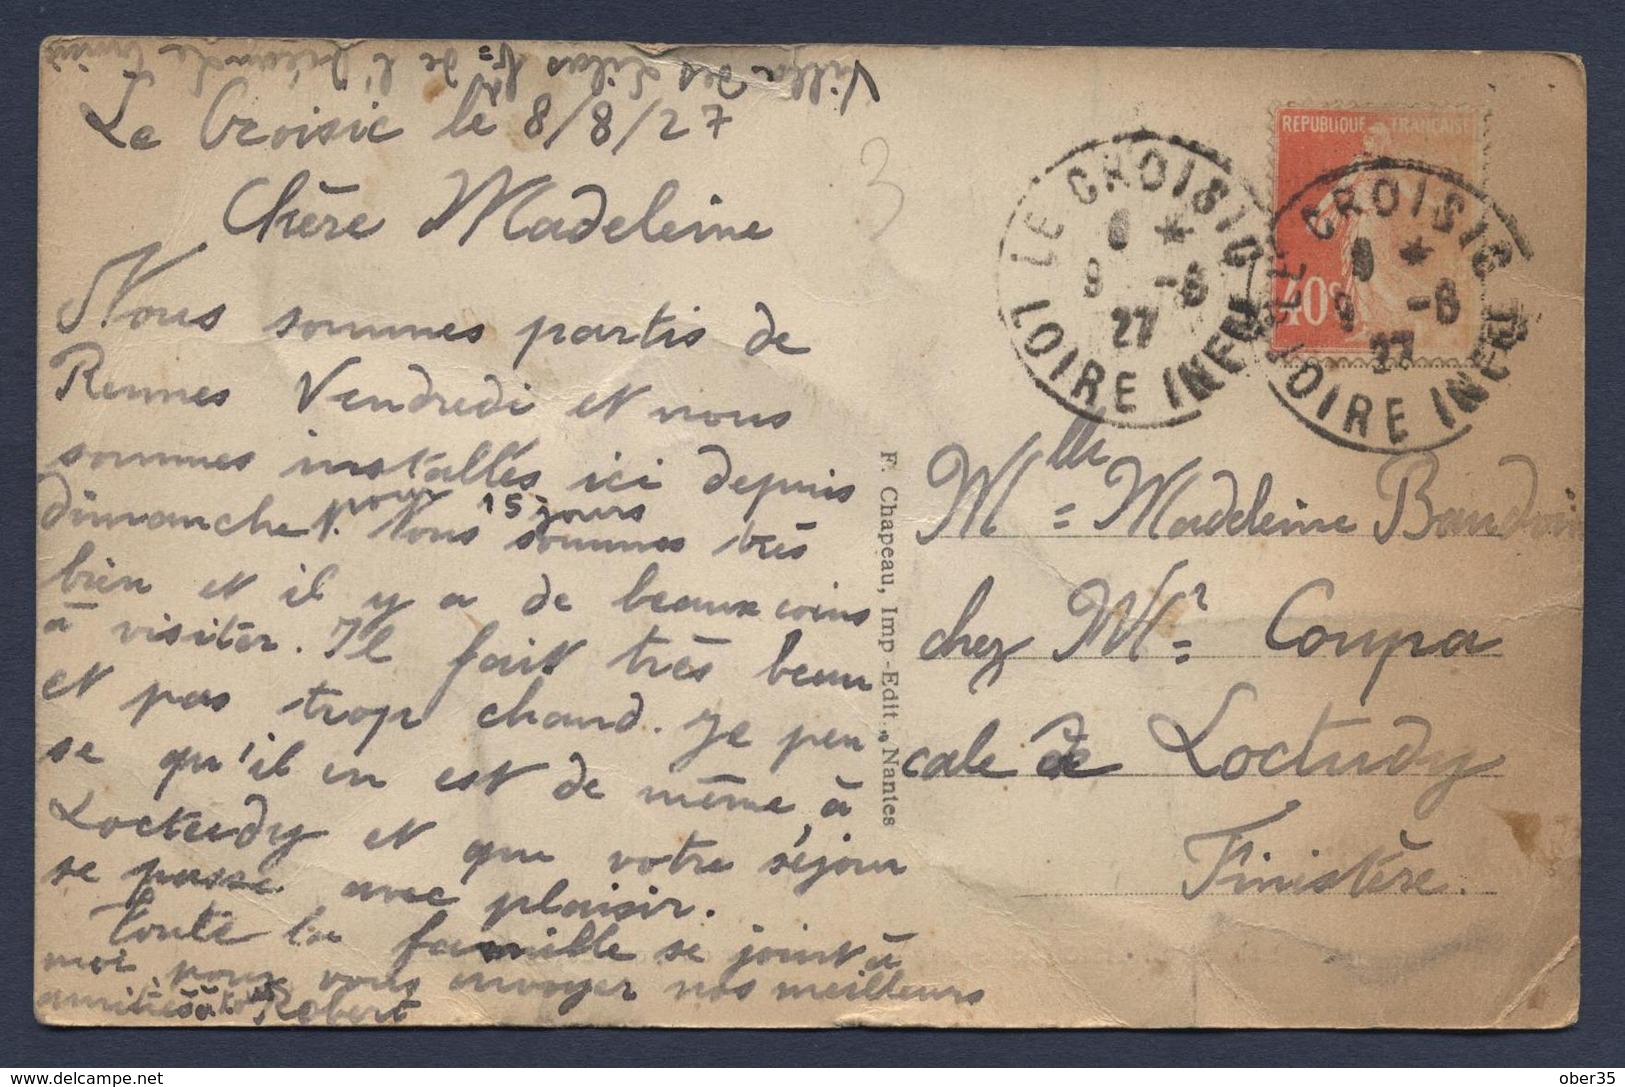 Villa des Lilas de l'Océan
Le Croisic le 8/8/27
Chère Madeleine
Nous sommes partis de
Rennes Vendredi et nous
sommes installés ici depuis
dimanche pour 15 jours. Nous sommes très
bien et il y a de beaux coins
à visiter. Il fait très beau
et pas trop chaud. Je pen
se qu'il en est de même à
Loctudy et que votre séjour
se passe avec plaisir.
Toute la famille se joint à
moi pour vous envoyer nos meilleurs
amitiés à tous Robert
3
REPUBLIQUE FRANÇAISE
40c
LE CROISIC
6 *
9 -8
27
LOIRE INFRE
LE CROISIC
6 *
9 -8
27
LOIRE INFRE
F. Chapeau, Imp-Edit., Nantes
Mlle Madeleine Baudoin
chez Mr Coupa
cale de Loctudy
Finistère.
delcampe.net
ober35